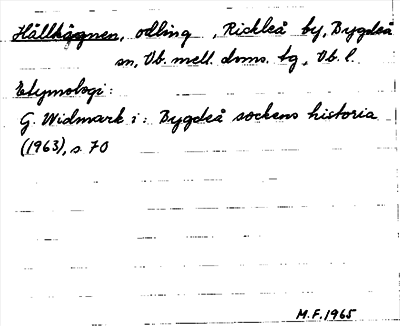 Hällhägnen, odling, Rickleå by, Bygdeå
sn, Vb. mell. doms. tg, Vb. l.
Etymologi:
G. Widmark i: Bygdeå sockens historia
(1963), s 70
M.F. 1965